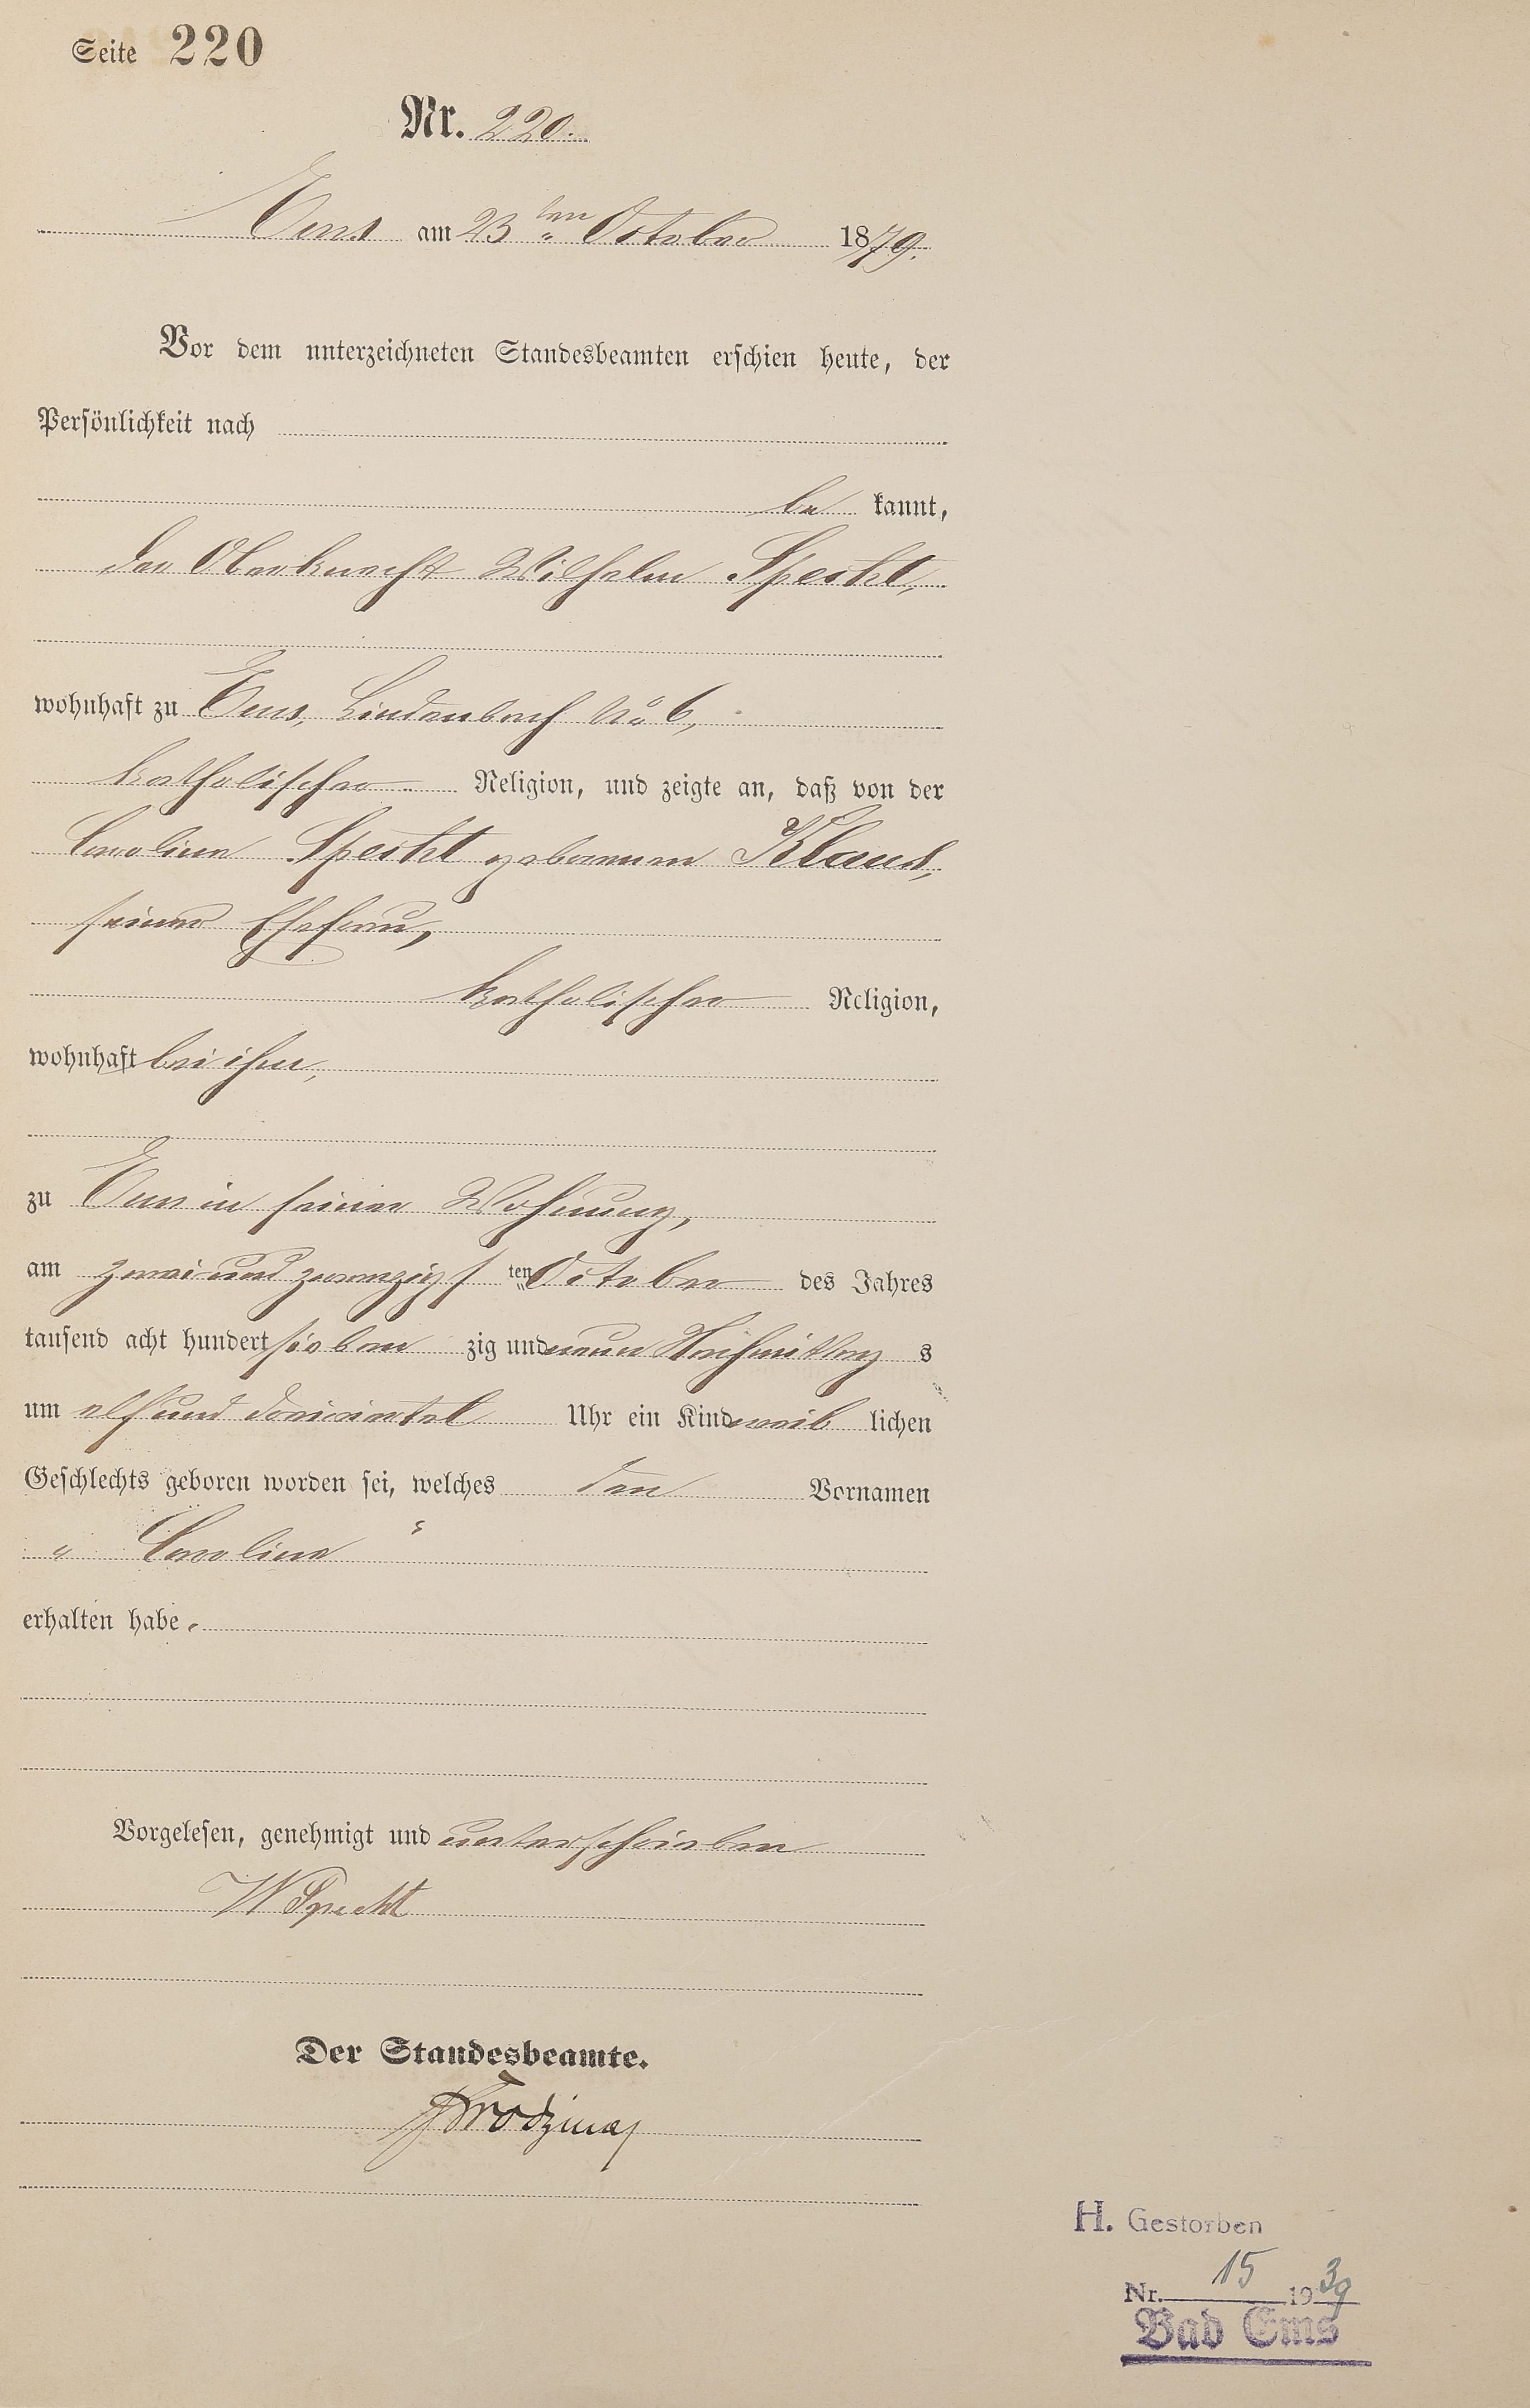 Seite 220
Nr. 220.
Ems am 23 ten October 1879.
Vor dem unterzeichneten Standesbeamten erschien heute, der
Persönlichkeit nach
be kannt,
der Oberknecht Wilhelm Specht,
wohnhaft zu Ems, Lindenbach No 6,
katholischer Religion, und zeigte an, daß von der
Caroline Specht geborenen Klaus,
seiner Ehefrau,
katholischer Religion,
wohnhaft bei ihm,
zu Ems in seiner Wohnung,
am zwei und zwanzigs ten October des Jahres
tausend acht hundert sieben zig und neun Nachmittag s
um elf und dreiviertel Uhr ein Kind weib lichen
Geschlechts geboren worden sei, welches den Vornamen
„ Caroline “
erhalten habe.
Vorgelesen, genehmigt und unterschrieben
W Specht
Der Standesbeamte.
H. Gestorben
Nr. 15 1939
Bad Ems